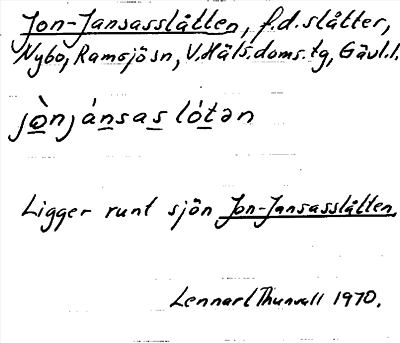 Jon-Jansasslåtten, f.d. slåtter,
Nybo, Ramsjö sn, V.Häls. doms. tg, Gävl.l.
jò̱̖njáṉsas̱ lóṯən
Ligger runt sjön Jon-Jansasslåtten
Lennart Thunvall 1970.